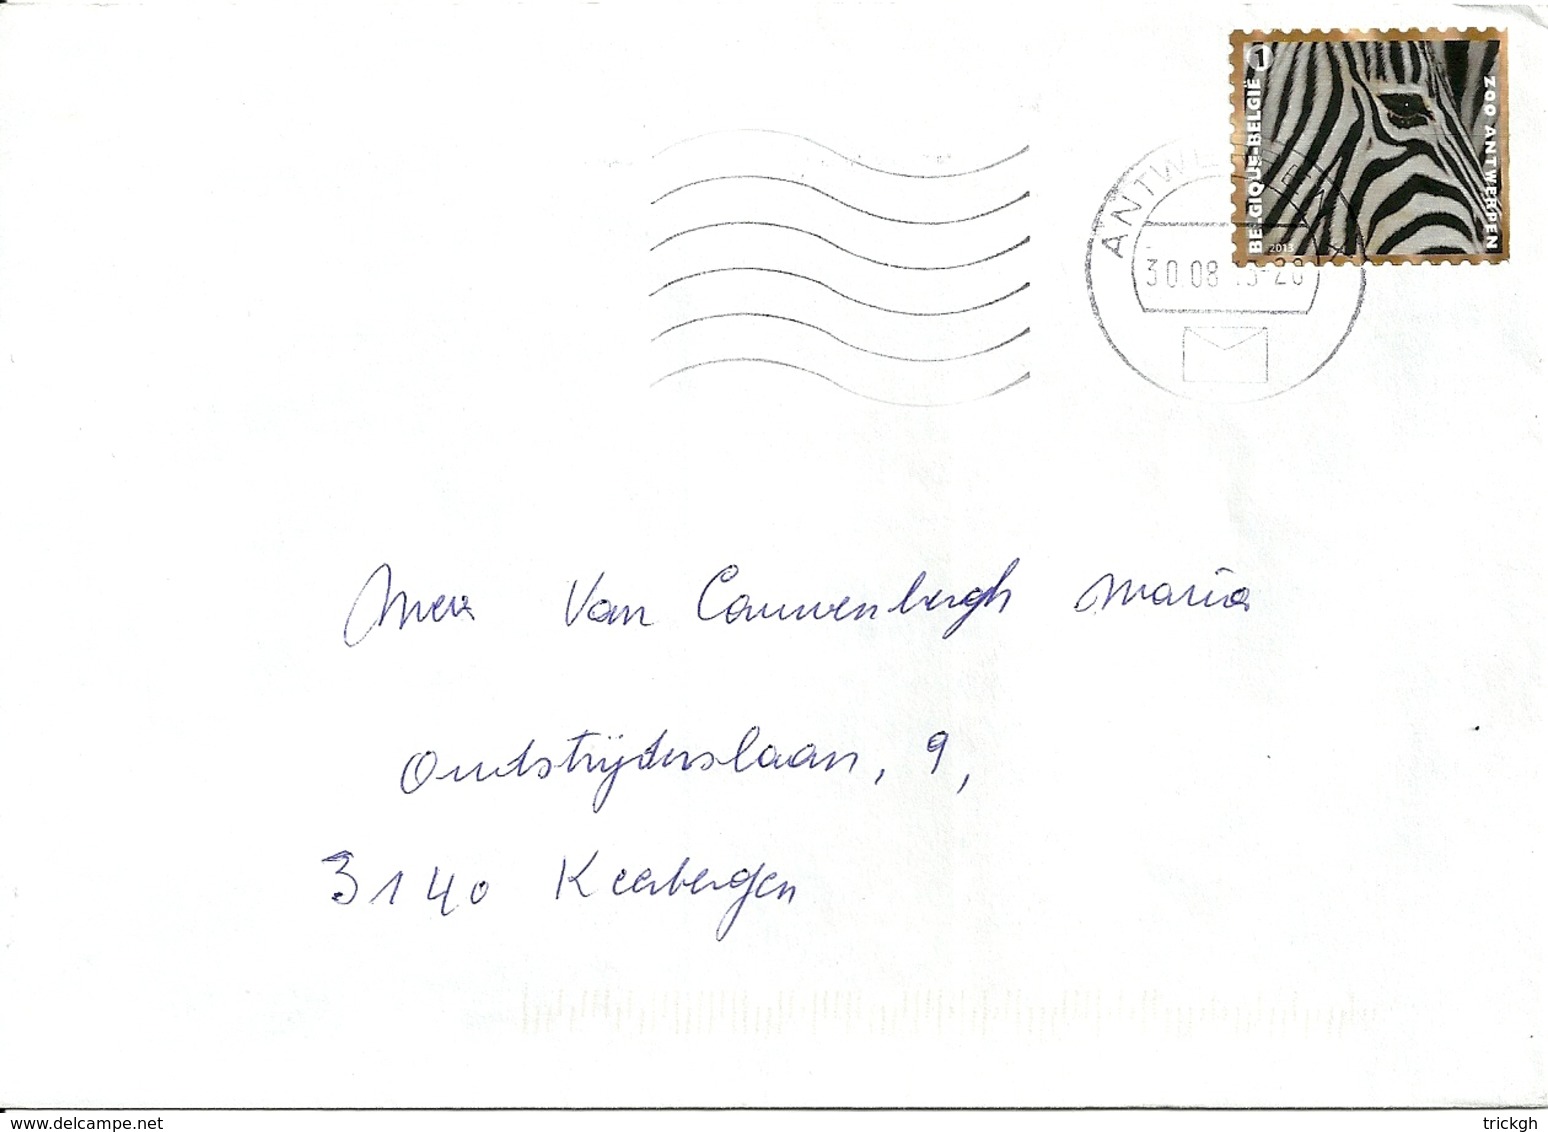 1
BELGIQUE-BELGIË
ZOO ANTWERPEN
2013
ANTWERPEN X
Mevr Van Cauwenbergh Maria
Oudstrijderslaan, 9,
3140 Keerbergen
delcampe.net
trickgh